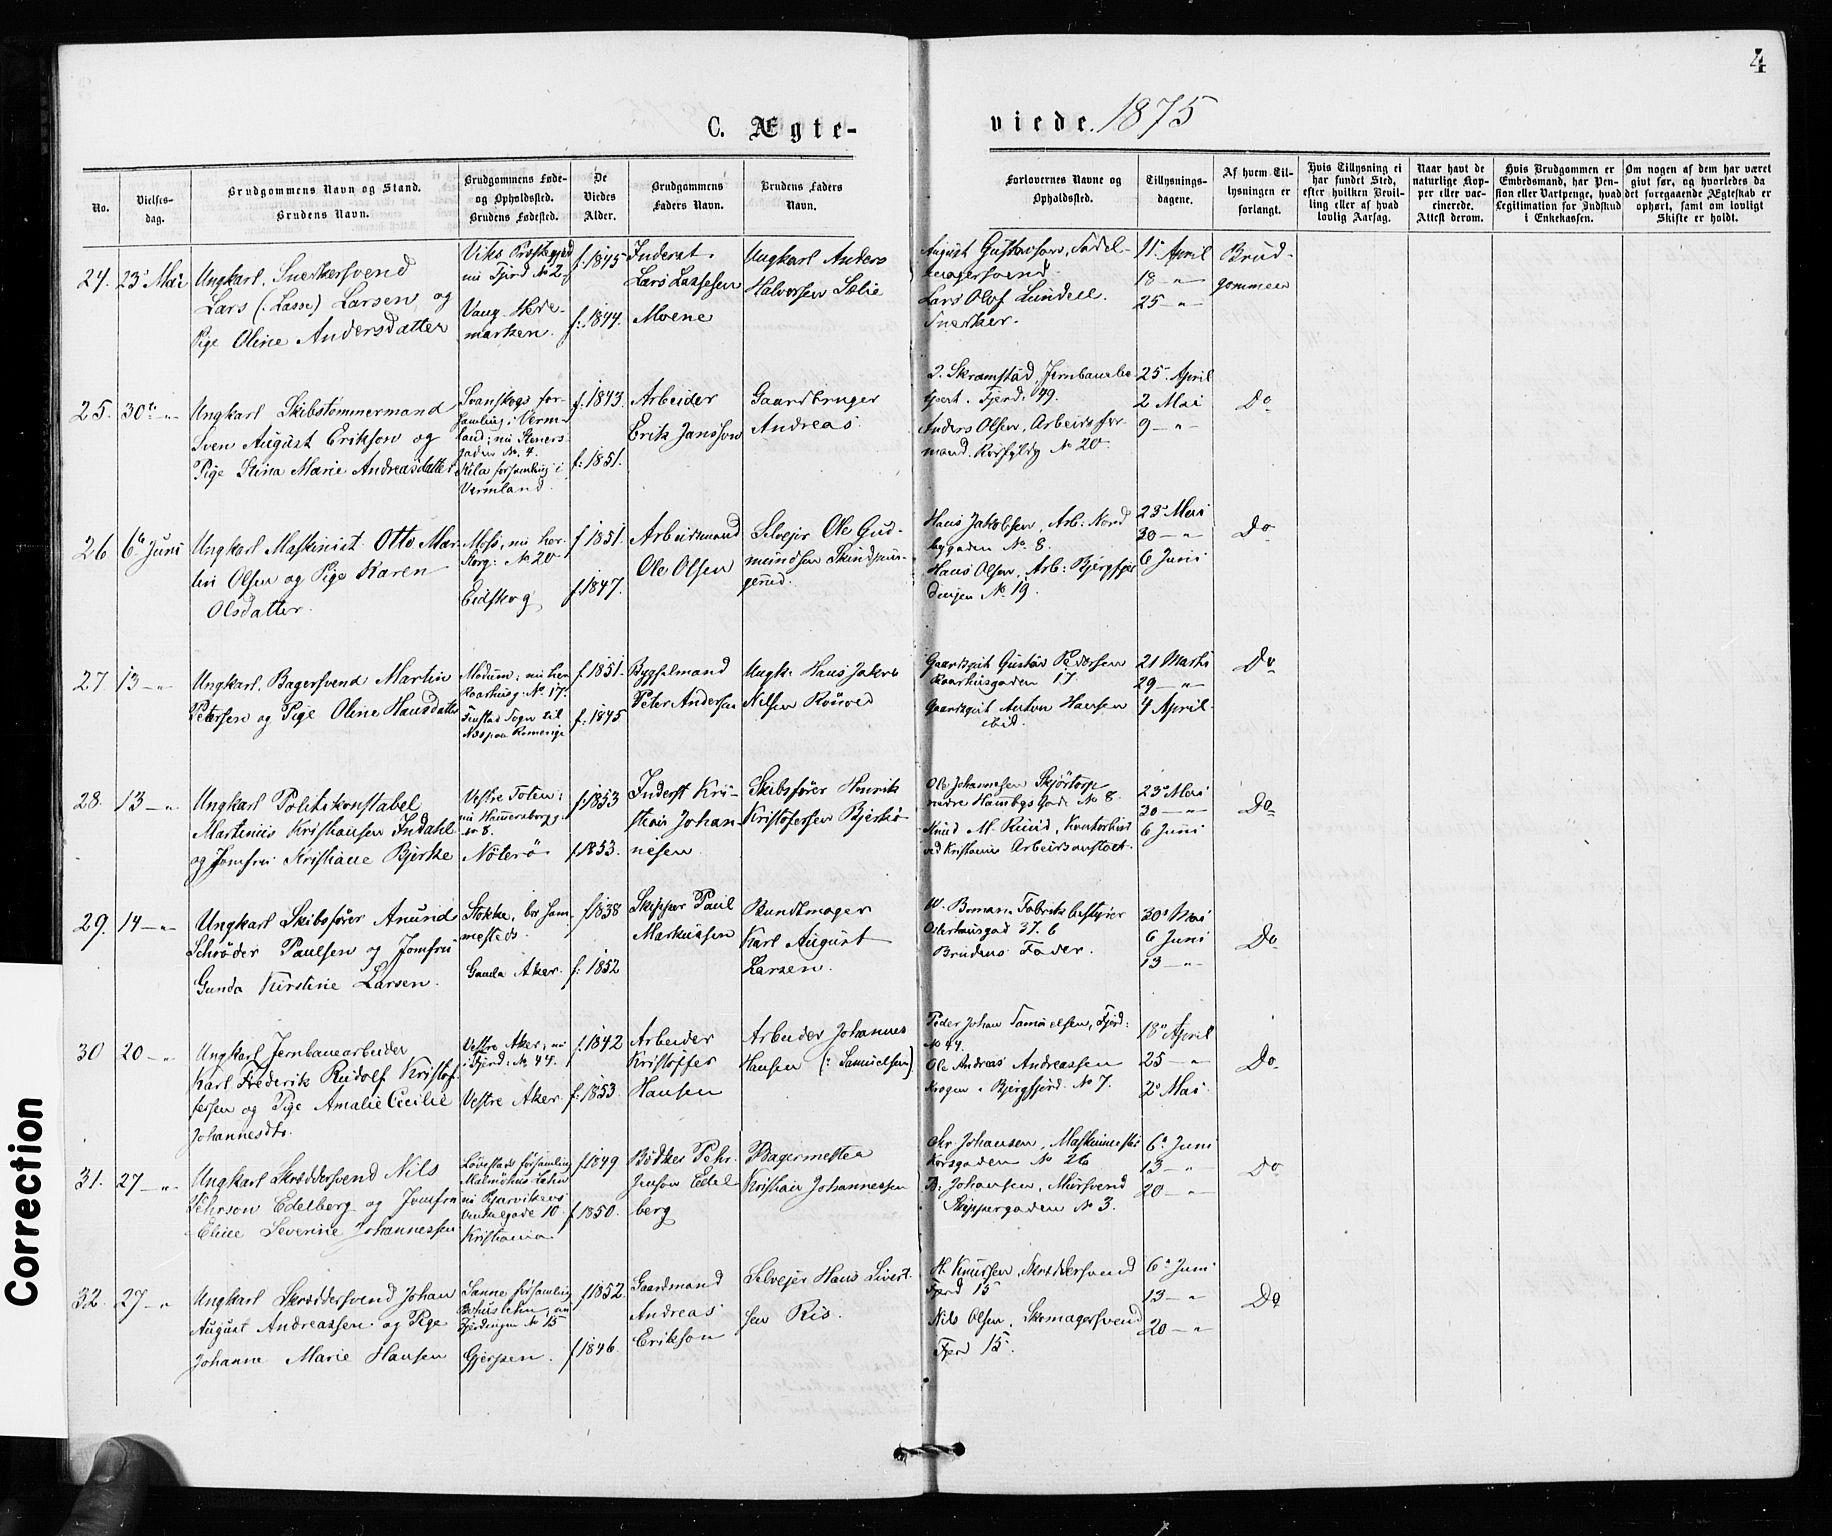 4
C. Ægte-
viede. 1875
No.
Vielses-
dag.
Brudgommens Navn og Stand.
Brudens Navn.
Brudgommens Føde-
og Opholdssted.
Brudens Fødested.
De
Viedes
Alder.
Brudgommens
Faders Navn.
Brudens Faders
Navn.
Forlovernes Navne og
Opholdssted.
Tillysnings-
dagene.
Af hvem Til-
lysningen er
forlangt.
Hvis Tillysning ei
har fundet Sted,
efter hvilken Bevil-
ling eller af hvad
lovlig Aarsag.
Naar havt de
naturlige Kop-
per eller vac-
cinerede.
Attest derom.
Hvis Brudgommen er
Embedsmand, har Pen-
sion eller Vartpenge, hvad
Legitimation for Indskud
i Enkekassen.
Om nogen af dem har været
givt før, og hvorledes da
det foregaaende Ægteskab er
ophørt, samt om lovligt
Skifte er holdt.
24. 23 Mai
Ungkarl, Snerkersvend
Lars (: Lasse) Larsen og
Pige Oline Andersdatter
nu Fjerd No 2
Vang Hede-
marken.
f. 1845
f. 1844.
Inderst
Lars Lassesen
Moene
Ungkarl Anders
Halvorsen Sælie
August Gustavson, Sadel-
magersvend
Lars Olof Lundell.
Snerker.
11 April
18 — "
25 — "
Brud-
gommen
25. 30te "
Ungkarl Skibstømmermand
Sven August Erikson og
Pige Stina Marie Andreasdatter
Svanskogs for-
samling i Verm-
land; nu Steners-
gaden No. 4.
Kila forsamling i
Vermland.
f. 1843.
f. 1851.
Arbeider
Erik Jansson
Gaardbruger
Andreas
J. Skramstad, Jernbanebe-
tjent. Fjerd. 49.
Anders Olsen, Arbeidsfor-
mand. No 20.
25 April
2 Mai
9 — "
Do
26 6te Juni
Ungkarl Maskinist Otto Mar-
tin Olsen og Pige Karen
Olsdatter.
Moss, nu her
No 20
Eidskog
f 1851.
f. 1847.
Arbeidsmand
Ole Olsen
Selveier Ole Gud-
mundsen Skindpun-
gerud.
Hans Jakobsen, Arb: Nord
bygaden No 8.
Hans Olsen, Arb: Bjergfjer
dingen No 19.
23 Mai
30 — "
6 Juni
Do
27 13 — "
Ungkarl, Bagersvend Martin
Petersen og Pige Oline Hansdatter
Modum; nu her
Raadhusg. No 17.
Finstad Sogn til
Næs paa Romerige
f. 1851.
f. 1845
Bygselmand
Peter Andersen
Ungk: Hans Jakob
Nilsen
Gaardsgut Gustav Pedersen
Raadhusgaden 17.
Gaardsgut Anton Hansen
ibid.
21 Marts
29 — "
4 April
Do
28. 13 — "
Ungkarl Politikonstabel
Martinius Kristiansen Indahl
og Jomfru Kristiane Bjerke
Vestre Toten;
nu Hammersborgg.
No 8.
Nøterø
f. 1853
f. 1853.
Inderst Kri-
stian Johan-
nesen
Skibsfører Henrik
Kristofersen Bjerke
Ole Johannesen Skjörtorp
nedre Hambgs Gade No 8.
Knud M. Ruud, Kontorbud
ved Kristiania Arbeidsanstalt.
23 Mai
30 — "
6 Juni
Do
29. 14 — "
Ungkarl Skibsfører Anund
Schrøder Paulsen og Jomfru
Gunda Kirstine Larsen.
Stokke, bor sam-
mesteds.
Gamle Aker.
f. 1838
f. 1852
Skipper Paul
Markussen
Bundtmager
Karl August
Larsen.
W. Boman, Fabrikbestyrer
Osterhausgad 37. b
Brudens Fader.
30 Mai
6 Juni
13 — "
Do
30 20 — "
Ungkarl Jernbanearbeider
Karl Frederik Rudolf Kristof-
fersen og Pige Amalie Cecilie
Johannesdtr.
Vestre Aker, nu
i Fjerd: No 44.
Vestre Aker.
f. 1842
f. 1853.
Arbeider
Kristoffer
Hansen
Arbeider Johannes
Hansen (: Samuelsen)
Peder Johan Samuelsen, Fjerd:
No 44.
Ole Andreas Andreassen
Krogen. Bjergfjerd. No 7.
18 April
25 — "
2 Mai
Do
31. 27 — "
Ungkarl Skræddersvend Nils
Pehrson Edelberg og Jomfru
Eline Severine Johannessen
Løvestads forsamling
Malmöhus Lehn
nu Bjørvikens
10
Kristiania
f. 1849
f. 1850.
Bødker Pehr
Jenson Edel-
berg
Bagermester
Kristian Johannessen
Chr. Johansen, Maskinmester
Korsgaden No 26
B. Johansen, Mursvend
Skippergaden No 3.
6 Juni
13 — "
20 — "
Do
32. 27 — "
Ungkarl Skræddersvend Johan
August Andreassen og Pige
Johanne Marie Hansen
Sanne forsamling
Bohuslehn, nu
Fjerdingen No 15
Gjerpen.
f. 1852.
f. 1846.
Gaardmand
Andreas
Erikson
Selveier Hans Sivert-
sen Ris.
H. Knudsen, Skræddersvend
Fjerd 15
Nils Olsen, Skomagersvend
Fjerd 15.
6 Juni
13 — "
20 — "
Do
Correction